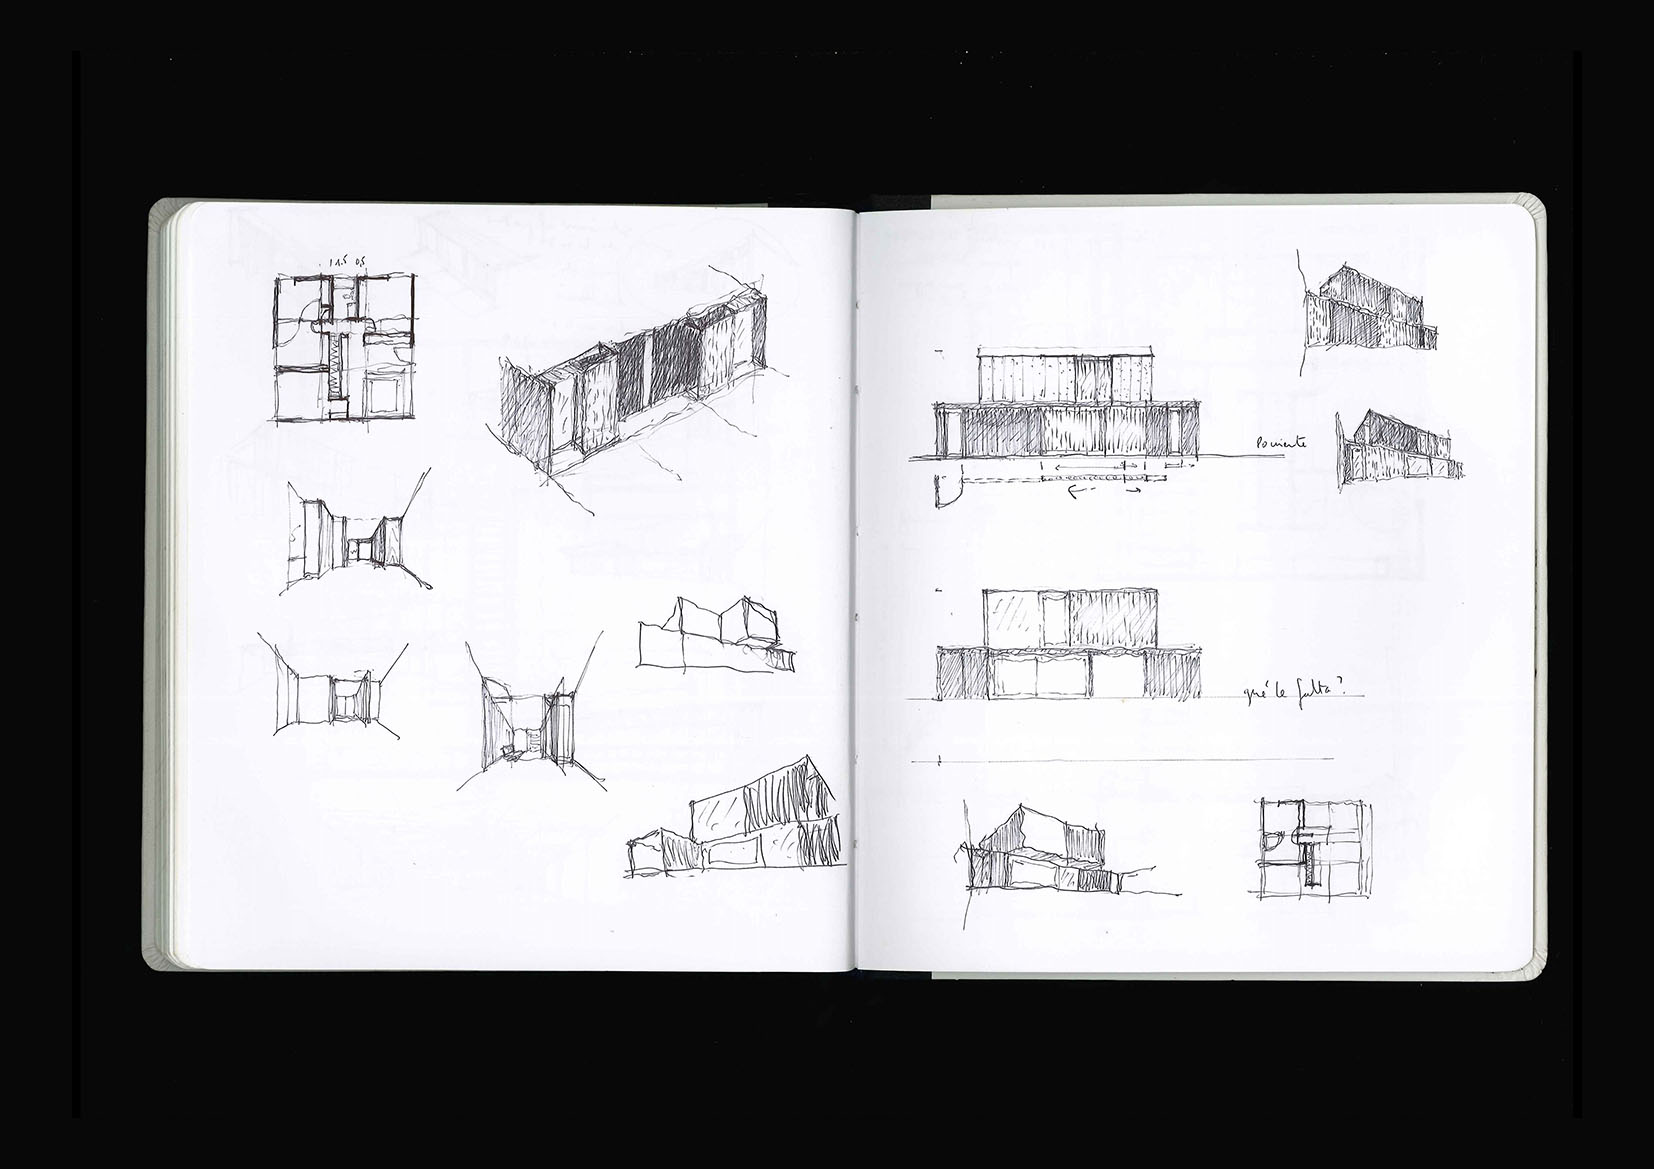 1.5 0.5
Poniente
qué le falta?